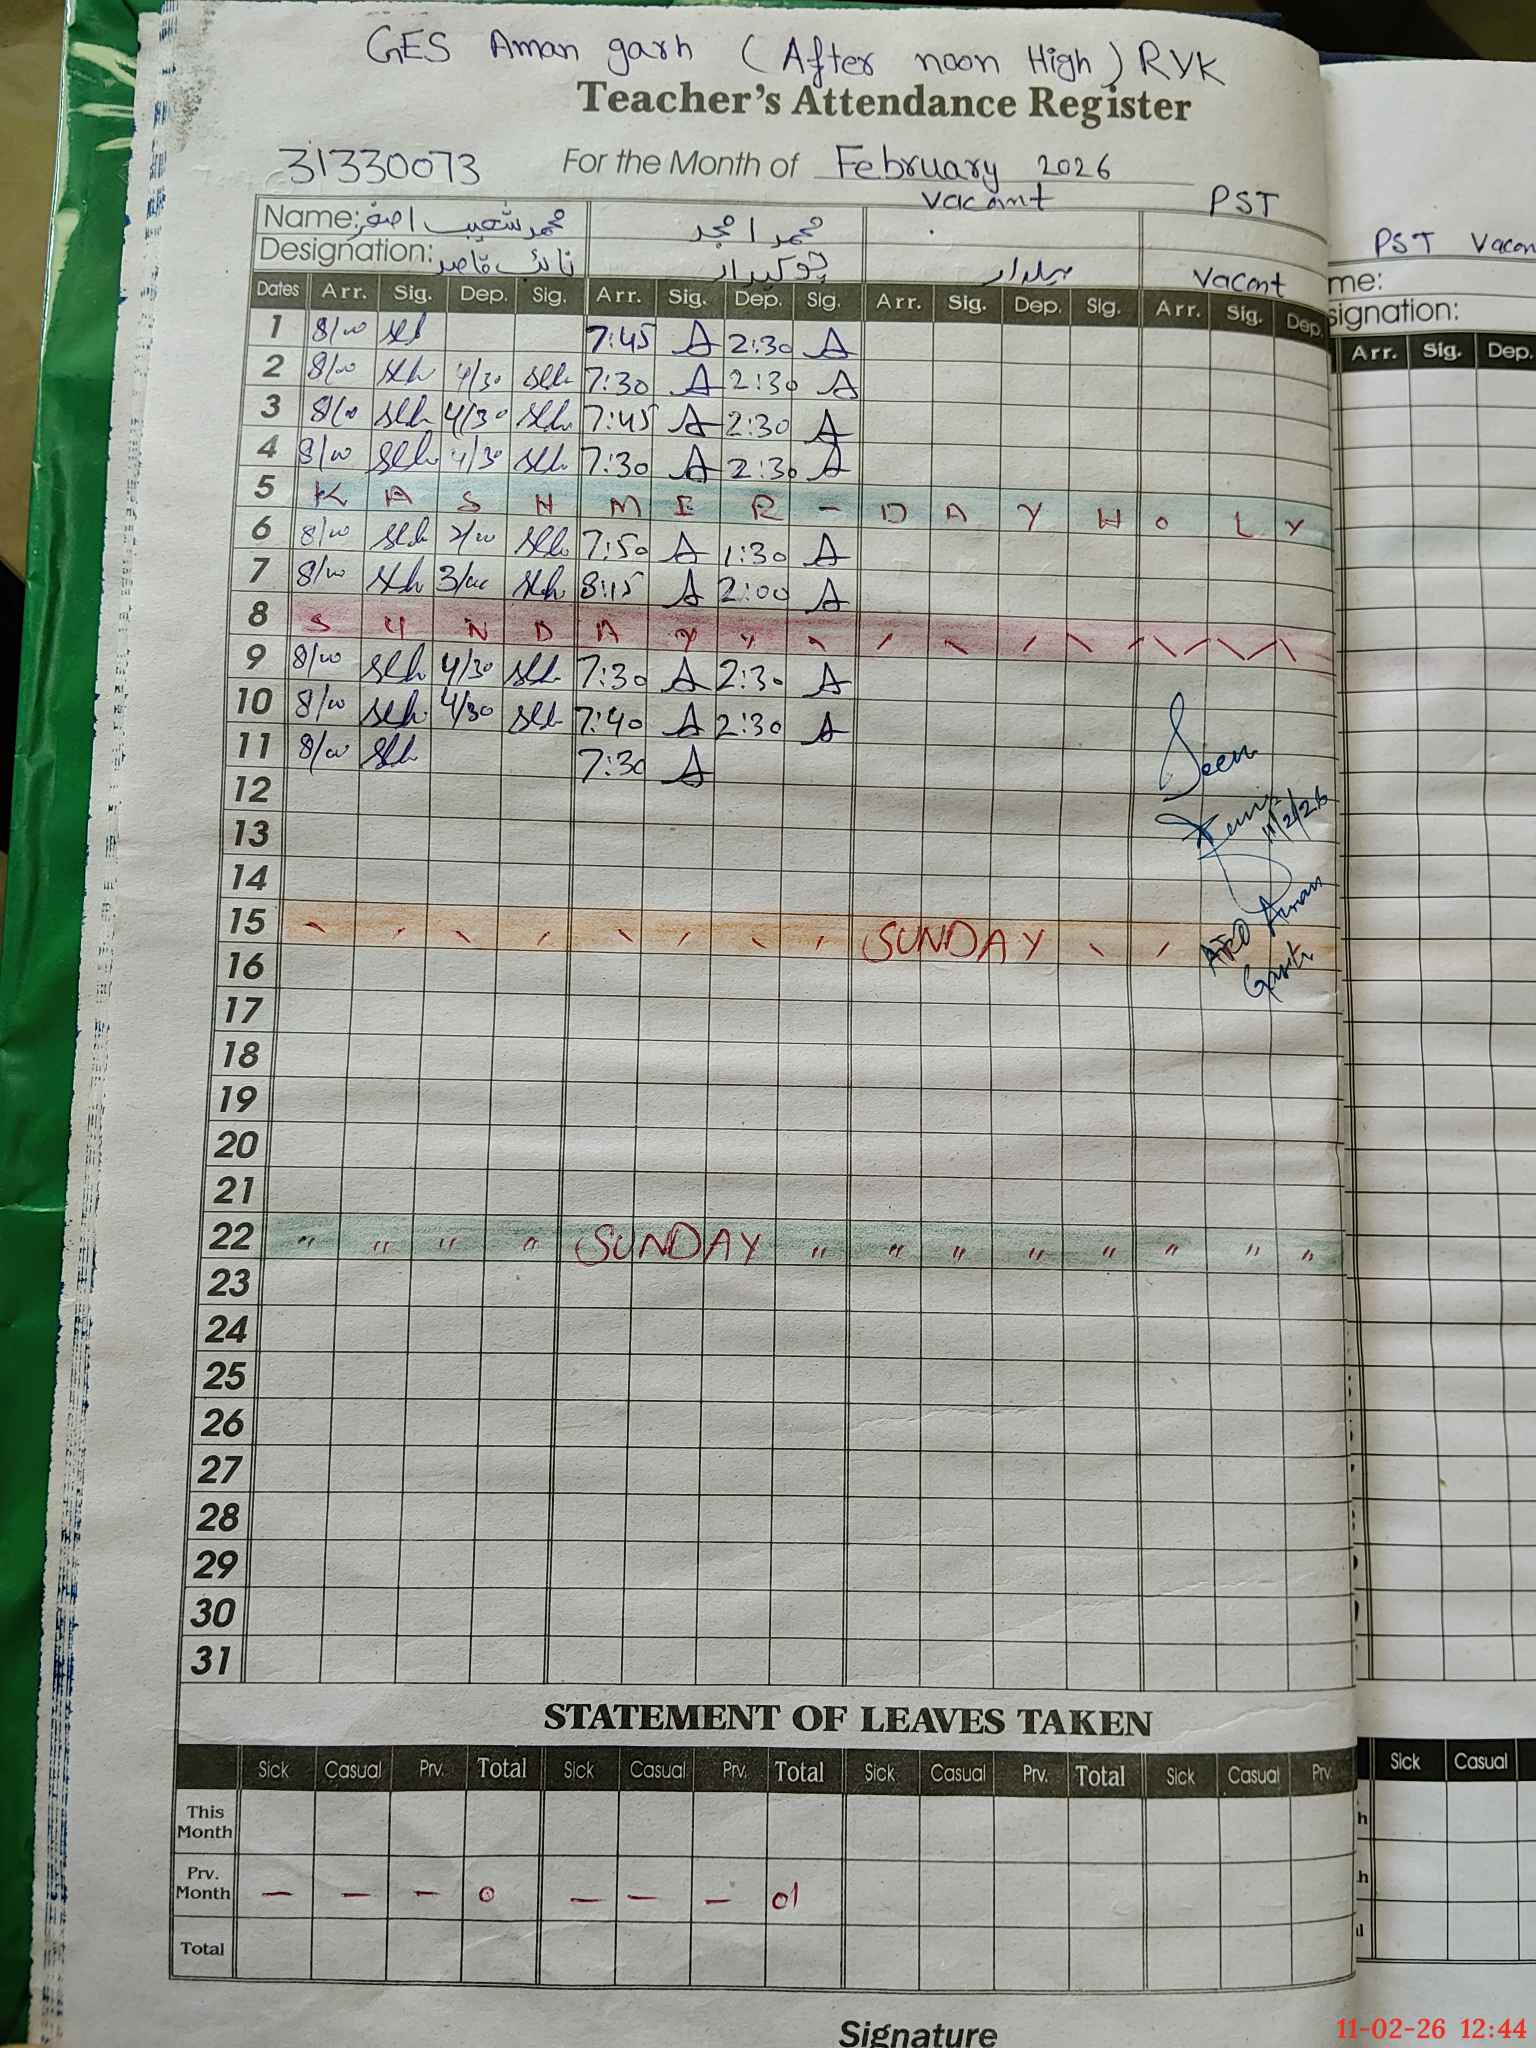 GES Aman garh (After noon High) RYK
Teacher's Attendance Register
31330073 For the Month of February 2026
vacant PST
Name: محمد شعیب اصغر محمد امجد
Designation: نائب قاصد چوکیدار بیلدار Vacant
Dates Arr. Sig. Dep. Sig. Arr. Sig. Dep. Sig. Arr. Sig. Dep. Sig. Arr. Sig. Dep.
1 8/00 7:45 A 2:30 A
2 8/00 4/30 7:30 A 2:30 A
3 8/00 4/30 7:45 A 2:30 A
4 8/00 4/30 7:30 A 2:30 A
5 K A S H M E R - D A Y H O L Y
6 8/00 2/00 7:50 A 1:30 A
7 8/00 3/00 8:15 A 2:00 A
8 S U N D A Y
9 8/00 4/30 7:30 A 2:30 A
10 8/00 4/30 7:40 A 2:30 A
11 8/00 7:30 A
12
13
14
15 SUNDAY
16
17
18
19
20
21
22 " " " " SUNDAY " " " " " " " "
23
24
25
26
27
28
29
30
31
Seen
11/2/26
AEO Aman
Garh
STATEMENT OF LEAVES TAKEN
Sick Casual Prv. Total Sick Casual Prv. Total Sick Casual Prv. Total Sick Casual Prv.
This Month
Prv. Month — — — 0 — — — 01
Total
Signature
PST Vacan
me:
signation:
Arr. Sig. Dep.
Sick Casual
11-02-26 12:44